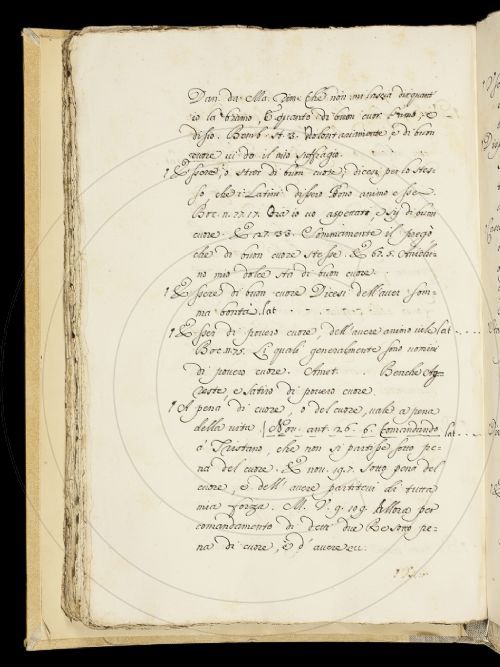 Dan. da Ma. Che non mi lascia dir quant'
io la bramo, E quanto di buon cuor l'amo, e
disio. Bemb. st. 3. Volontariamente, e di buon
cuore vi do il mio suffragio.
¶ Essere, o star di buon cuore; dicesi per lo stes=
so che i Latini dissero Bono animo esse.
Boc. n. 77. 17. Ora io vo aspettare, e sij di buon
cuore. E 27. 33. Sommamente il pregò
che di buon cuore stesse. E 67. 5. Anichi=
no mio dolce sta di buon cuore.
¶ Essere di buon cuore Dicesi dell'aver som=
ma bontà, lat. . . . .
¶ Esser di povero cuore, dell'avere animo vile lat. . . .
Boc. n. 75. Li quali generalmente sono uomini
di povero cuore. Amet. . . Benche Ag=
reste e satiro di povero cuore.
¶ A pena di cuore, o del cuore, vale a pena
della vita. Nov. ant. 26. 6. Comandando lat. . . .
a Tristano, che non si partisse sotto pe=
na del cuore. E nov. 19. 7. Sotto pena del
cuore, e dell' avere partitevi di tutta
mia forza. M. V. 9. 109. Allora per
comandamento di detti due Re sotto pe=
na di cuore, e d' avere ec.